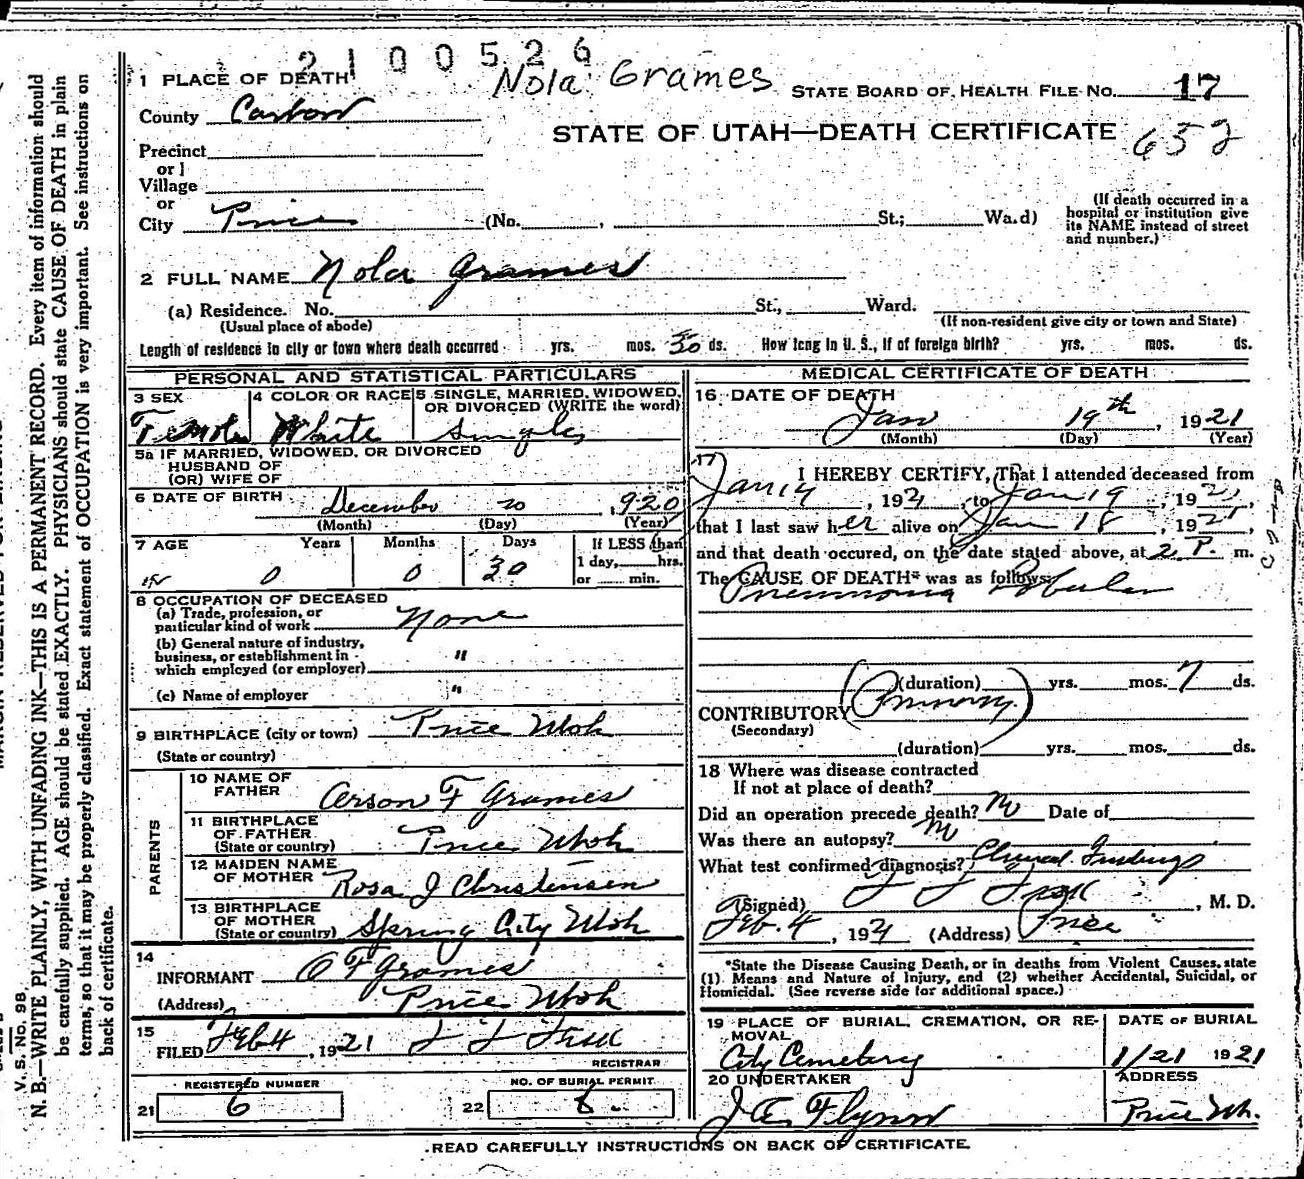 2100526
Nola Grames
1 PLACE OF DEATH
STATE BOARD OF HEALTH FILE NO. 17
County Carbon
STATE OF UTAH—DEATH CERTIFICATE 652
Precinct
or
Village
or
City Price (No. , St.; Wa.d)
(If death occurred in a
hospital or institution give
its NAME instead of street
and number.)
2 FULL NAME Nola Grames
(a) Residence. No. St., Ward.
(Usual place of abode) (If non-resident give city or town and State)
Length of residence in city or town where death occurred yrs. mos. 30 ds. How long in U. S., if of foreign birth? yrs. mos. ds.
PERSONAL AND STATISTICAL PARTICULARS
3 SEX 4 COLOR OR RACE 5 SINGLE, MARRIED, WIDOWED,
OR DIVORCED (WRITE the word)
Female White Single
5a IF MARRIED, WIDOWED, OR DIVORCED
HUSBAND OF
(OR) WIFE OF
6 DATE OF BIRTH December 20, 1920
(Month) (Day) (Year)
7 AGE Years Months Days If LESS than
1 day, hrs.
or min.
0 0 30
8 OCCUPATION OF DECEASED
(a) Trade, profession, or
particular kind of work None
(b) General nature of industry,
business, or establishment in
which employed (or employer) "
(c) Name of employer "
9 BIRTHPLACE (city or town) Price Utah
(State or country)
PARENTS
10 NAME OF
FATHER Orson F Grames
11 BIRTHPLACE
OF FATHER
(State or country) Price Utah
12 MAIDEN NAME
OF MOTHER Rosa J Christensen
13 BIRTHPLACE
OF MOTHER
(State or country) Spring City Utah
14
INFORMANT O F Grames
(Address) Price Utah
15
FILED Feb 4, 1921
REGISTRAR
REGISTERED NUMBER NO. OF BURIAL PERMIT
21 6 22 6.
MEDICAL CERTIFICATE OF DEATH
16 DATE OF DEATH
Jan 19th, 1921
(Month) (Day) (Year)
17
I HEREBY CERTIFY, That I attended deceased from
Jan 14, 1921, to Jan 19, 1921,
that I last saw her alive on Jan 18, 1921,
and that death occured, on the date stated above, at 2 P. m.
The CAUSE OF DEATH* was as follows:
Pneumonia Lobular
(duration) yrs. mos. 7 ds.
CONTRIBUTORY (Primary)
(Secondary)
(duration) yrs. mos. ds.
18 Where was disease contracted
If not at place of death?
Did an operation precede death? No Date of
Was there an autopsy? No
What test confirmed diagnosis? Clinical Findings
(Signed) , M. D.
Feb. 4, 1921 (Address) Price
*State the Disease Causing Death, or in deaths from Violent Causes, state
(1) Means and Nature of Injury, and (2) whether Accidental, Suicidal, or
Homicidal. (See reverse side for additional space.)
19 PLACE OF BURIAL, CREMATION, OR RE-
MOVAL DATE OF BURIAL
City Cemetery 1/21 1921
20 UNDERTAKER ADDRESS
J E Flynn Price Ut.
READ CAREFULLY INSTRUCTIONS ON BACK OF CERTIFICATE.
V. S. No. 98.
N. B.—WRITE PLAINLY, WITH UNFADING INK—THIS IS A PERMANENT RECORD. Every item of information should
be carefully supplied. AGE should be stated EXACTLY. PHYSICIANS should state CAUSE OF DEATH in plain
terms, so that it may be properly classified. Exact statement of OCCUPATION is very important. See instructions on
back of certificate.